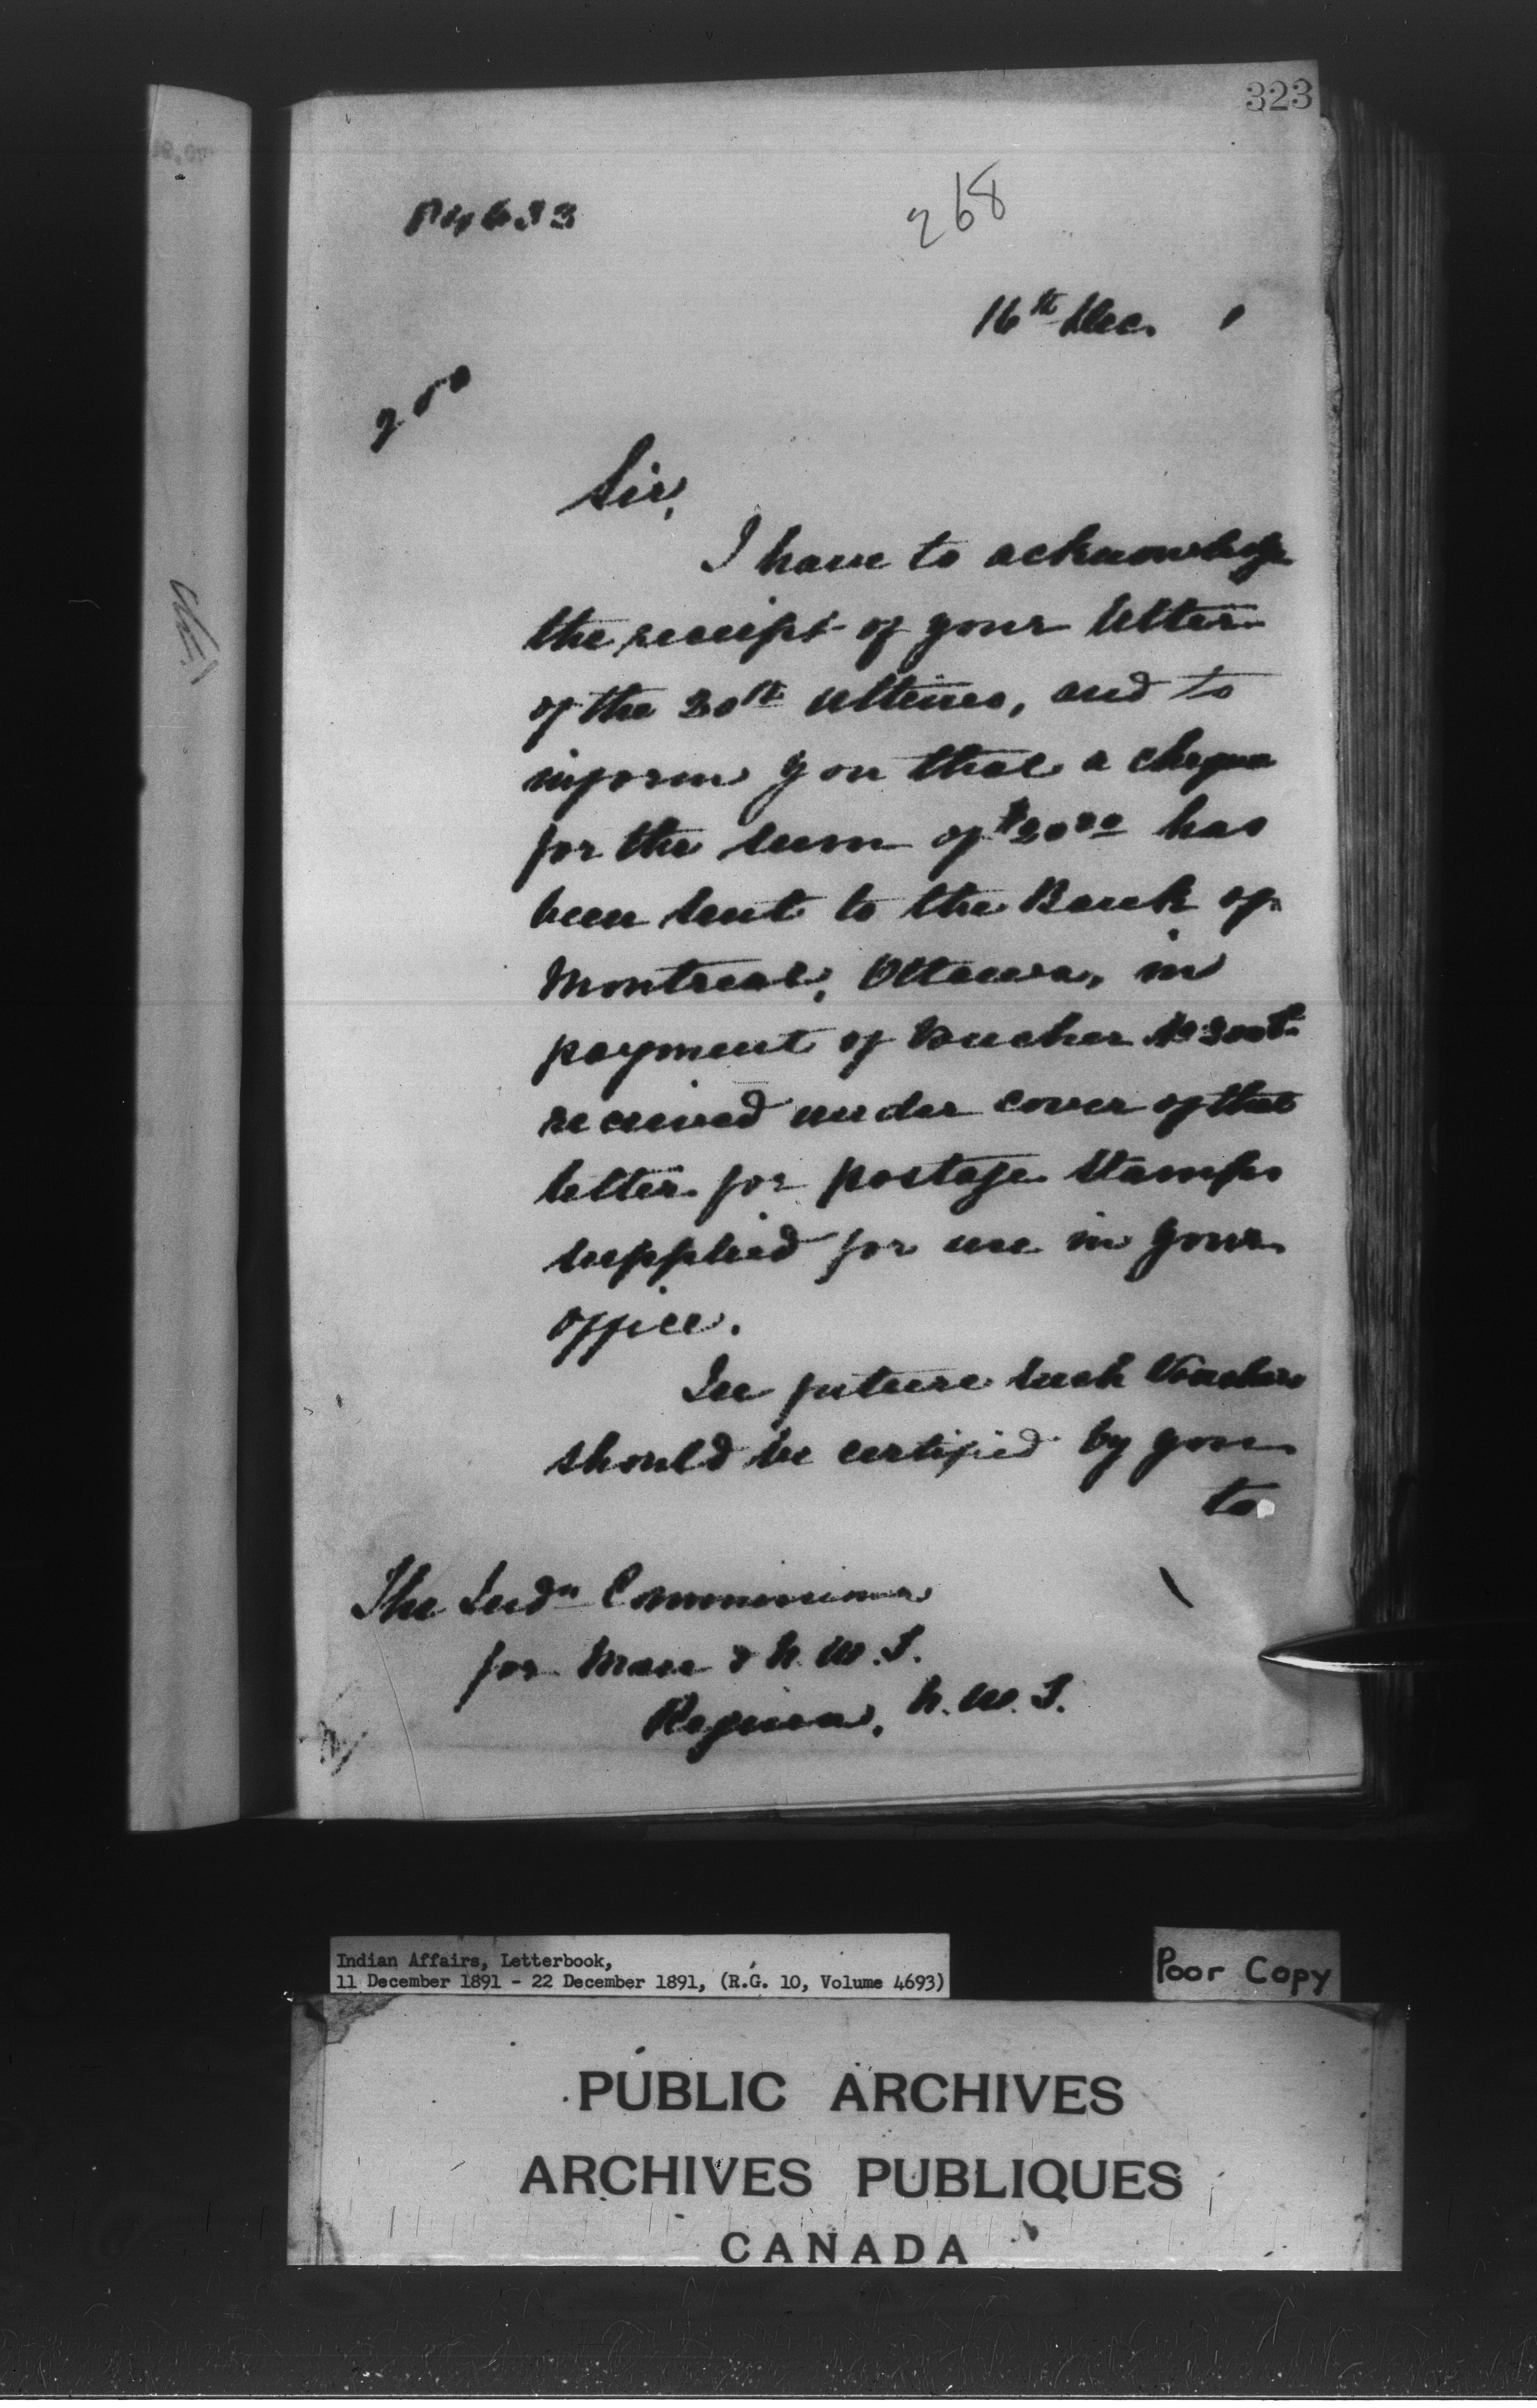 323
268
16th Dec. 1
Sir,
I have to acknowledge
the receipt of your letter
of the 30th ultimo, and to
inform you that a cheque
for the sum of $20.00 has
been sent to the Bank of
Montreal, Ottawa, in
payment of Voucher No
received under cover of that
letter for postage stamps
supplied for use in your
office.
In future such Vouchers
should be certified by you
to
The Indn Commissioner
for Man & N.W.T.
Regina, N.W.T.
Indian Affairs, Letterbook,
11 December 1891 - 22 December 1891, (R.G. 10, Volume 4693)
Poor Copy
PUBLIC ARCHIVES
ARCHIVES PUBLIQUES
CANADA